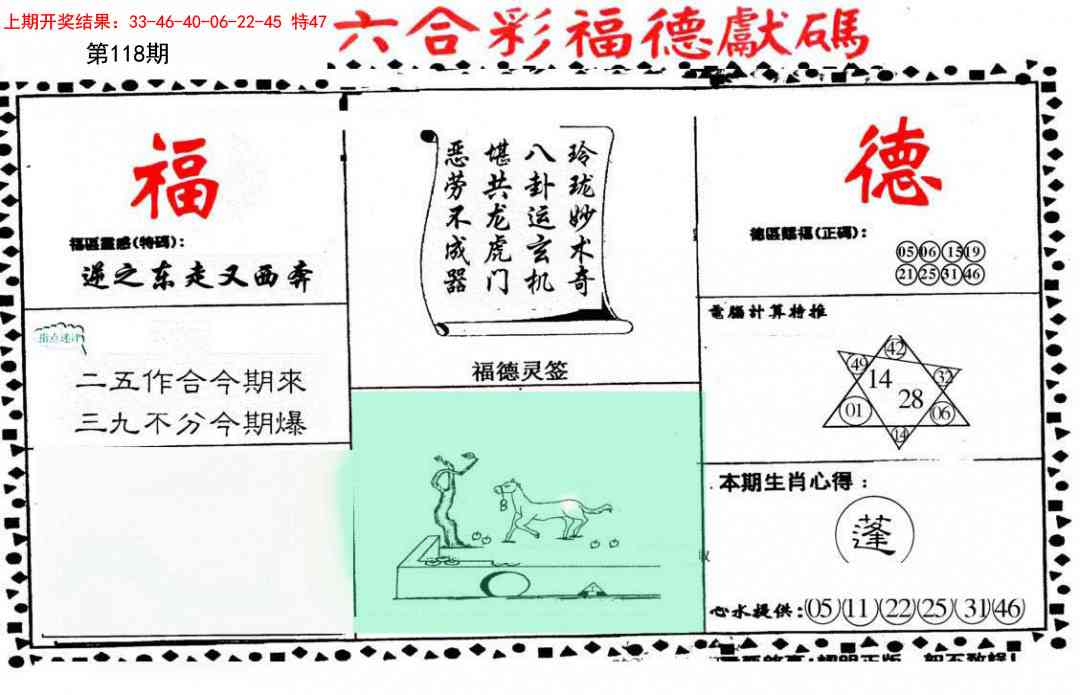 上期开奖结果: 33-46-40-06-22-45 特47
第118期
六合彩福德獻碼
福
福區靈感(特碼):
逆之东走又西奔
二五作合今期來
三九不分今期爆
玲珑妙术奇
八卦运玄机
堪共龙虎门
恶劳不成器
福德灵签
德
05 06 15 19
21 25 31 46
電腦計算特推
42
49 14 32
28
01 06
14
本期生肖心得:
蓬
心水提供:05 11 22 25 31 46